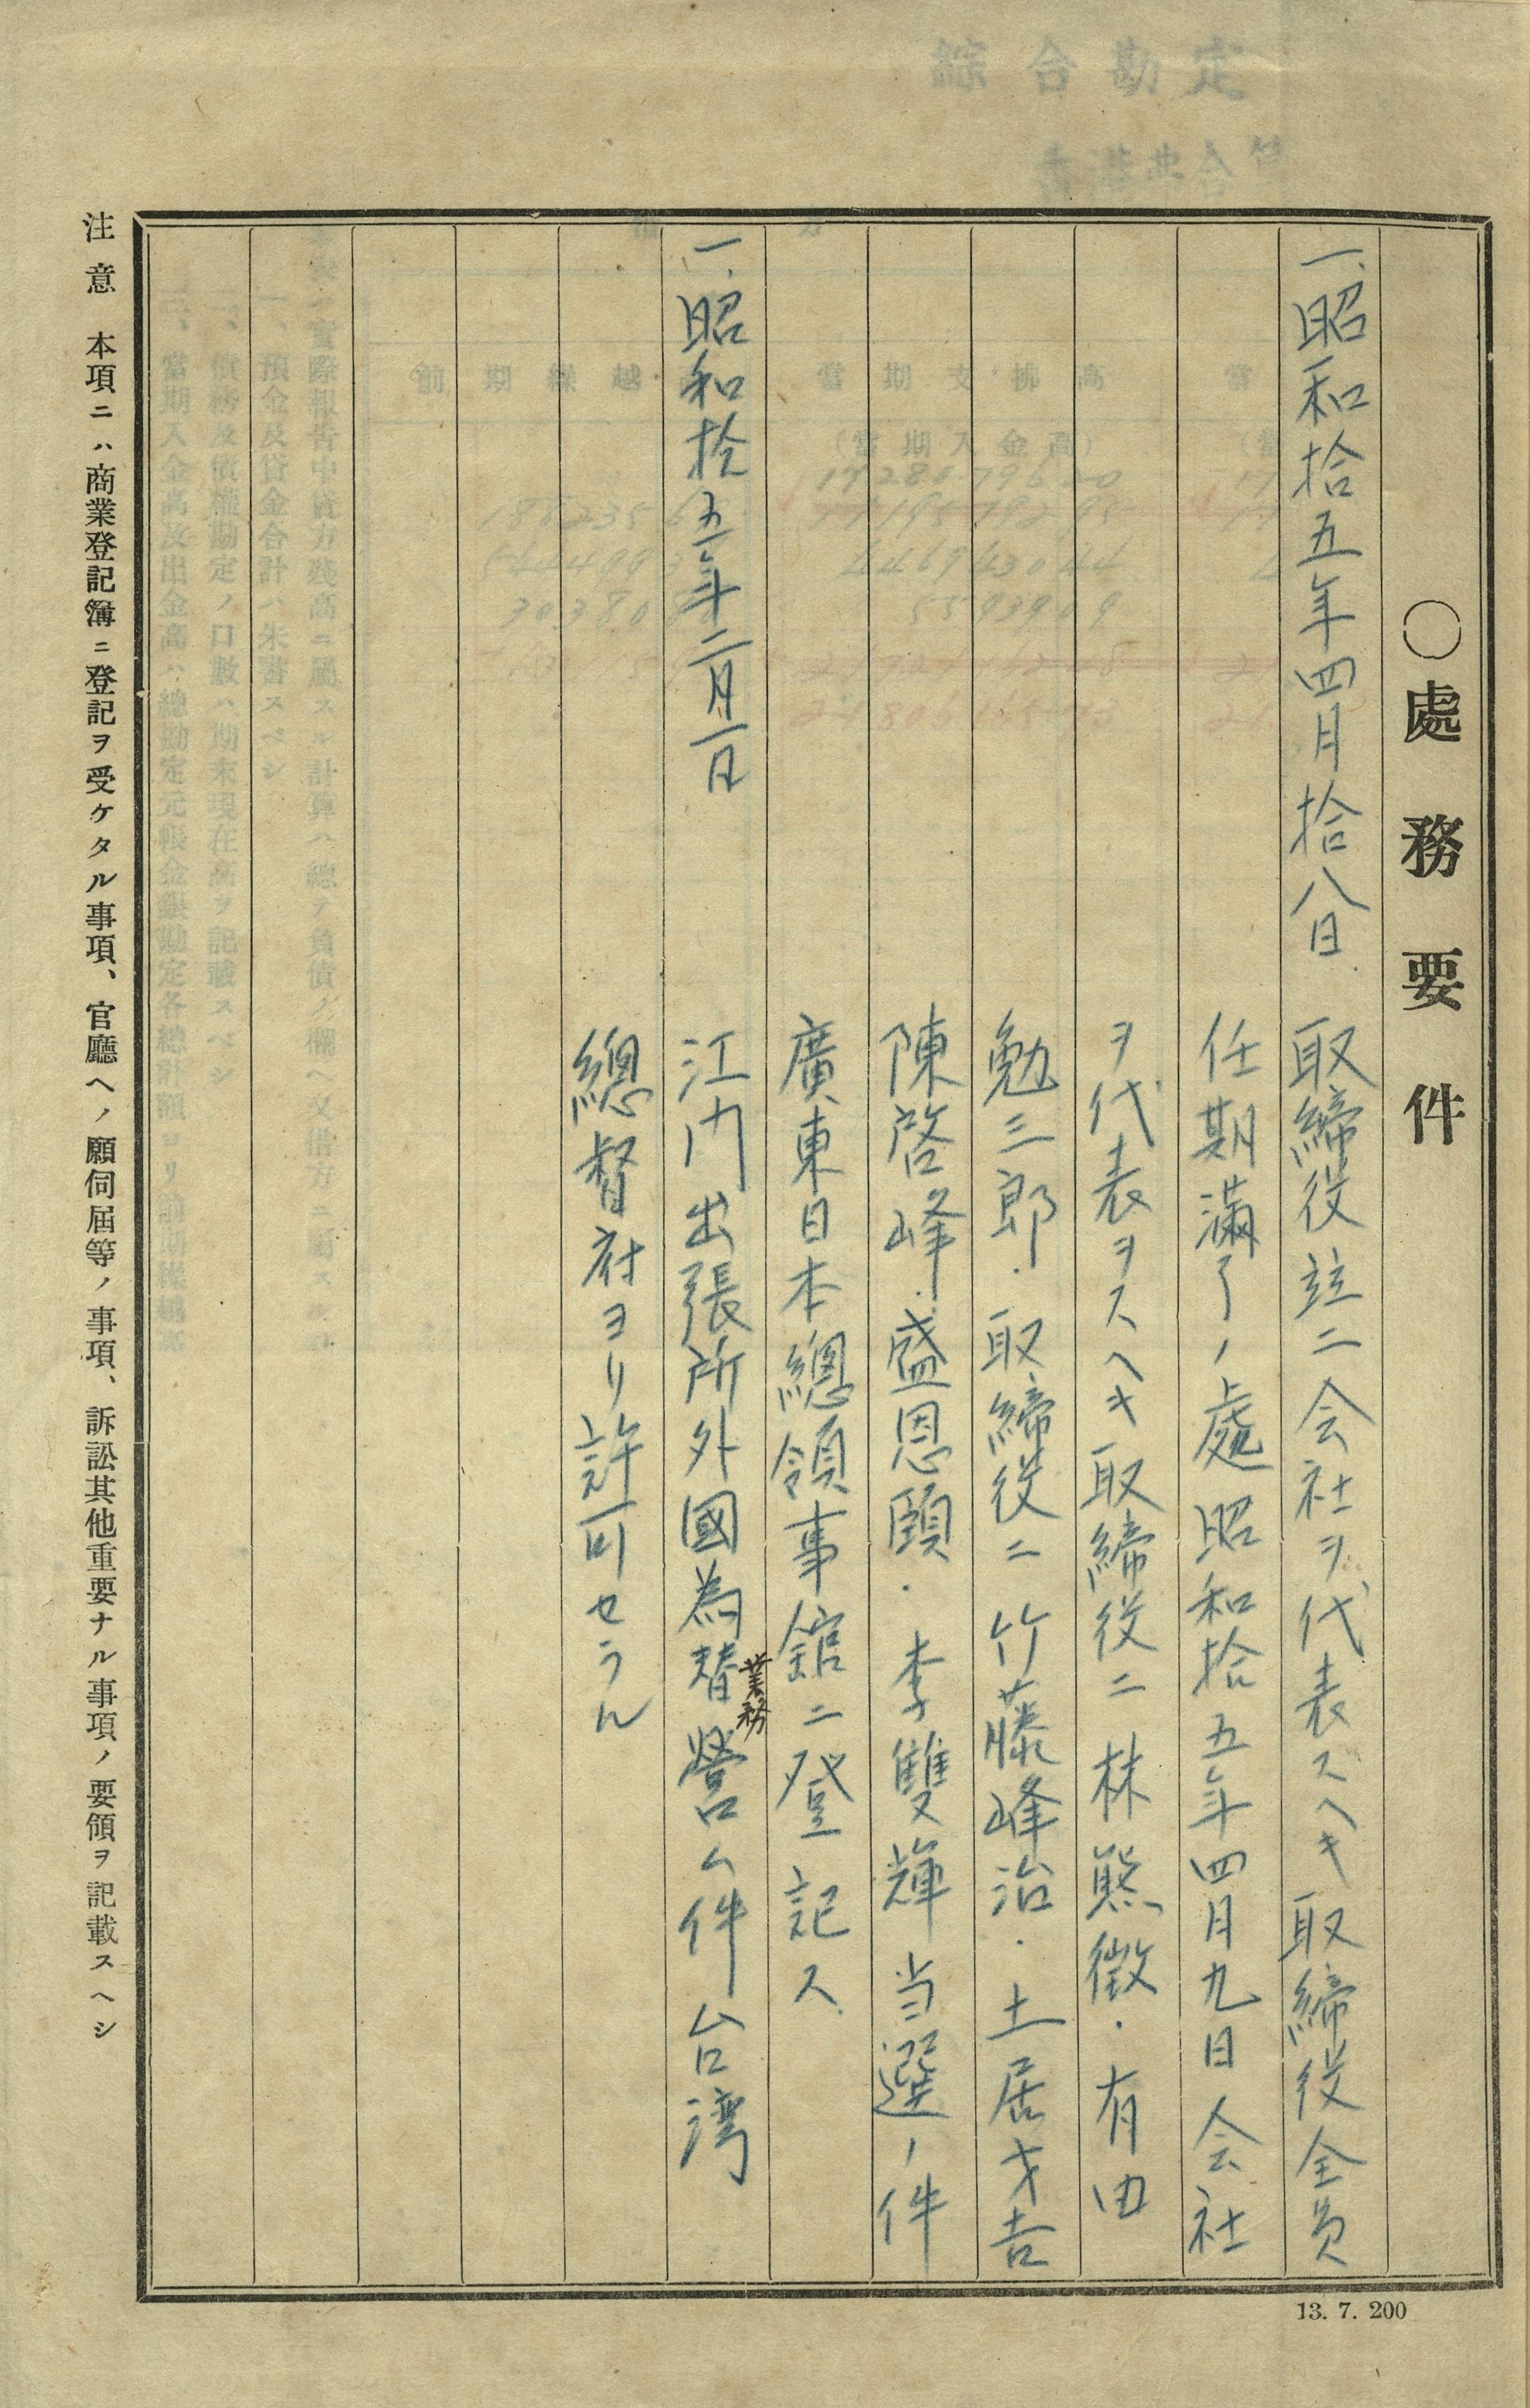 ○處務要件
一、昭和拾五年四月拾八日 取締役竝ニ会社ヲ代表スヘキ取締役全員
任期滿了ノ處昭和拾五年四月九日会社
ヲ代表ヲスヘキ取締役ニ林熊徴・有田
勉三郎・取締役ニ竹藤峰治・土居才吉
陳啓峰・盛恩頤・李雙輝当選ノ件
廣東日本總領事館ニ登記ス
一、昭和拾五年二月一日 江门出張所外國為替業務營ム件台湾
總督府ヨリ許可セラル
注意 本項ニハ商業登記簿ニ登記ヲ受ケタル事項、官廳ヘノ願伺屆等ノ事項、訴訟其他重要ナル事項ノ要領ヲ記載スヘシ
13. 7. 200